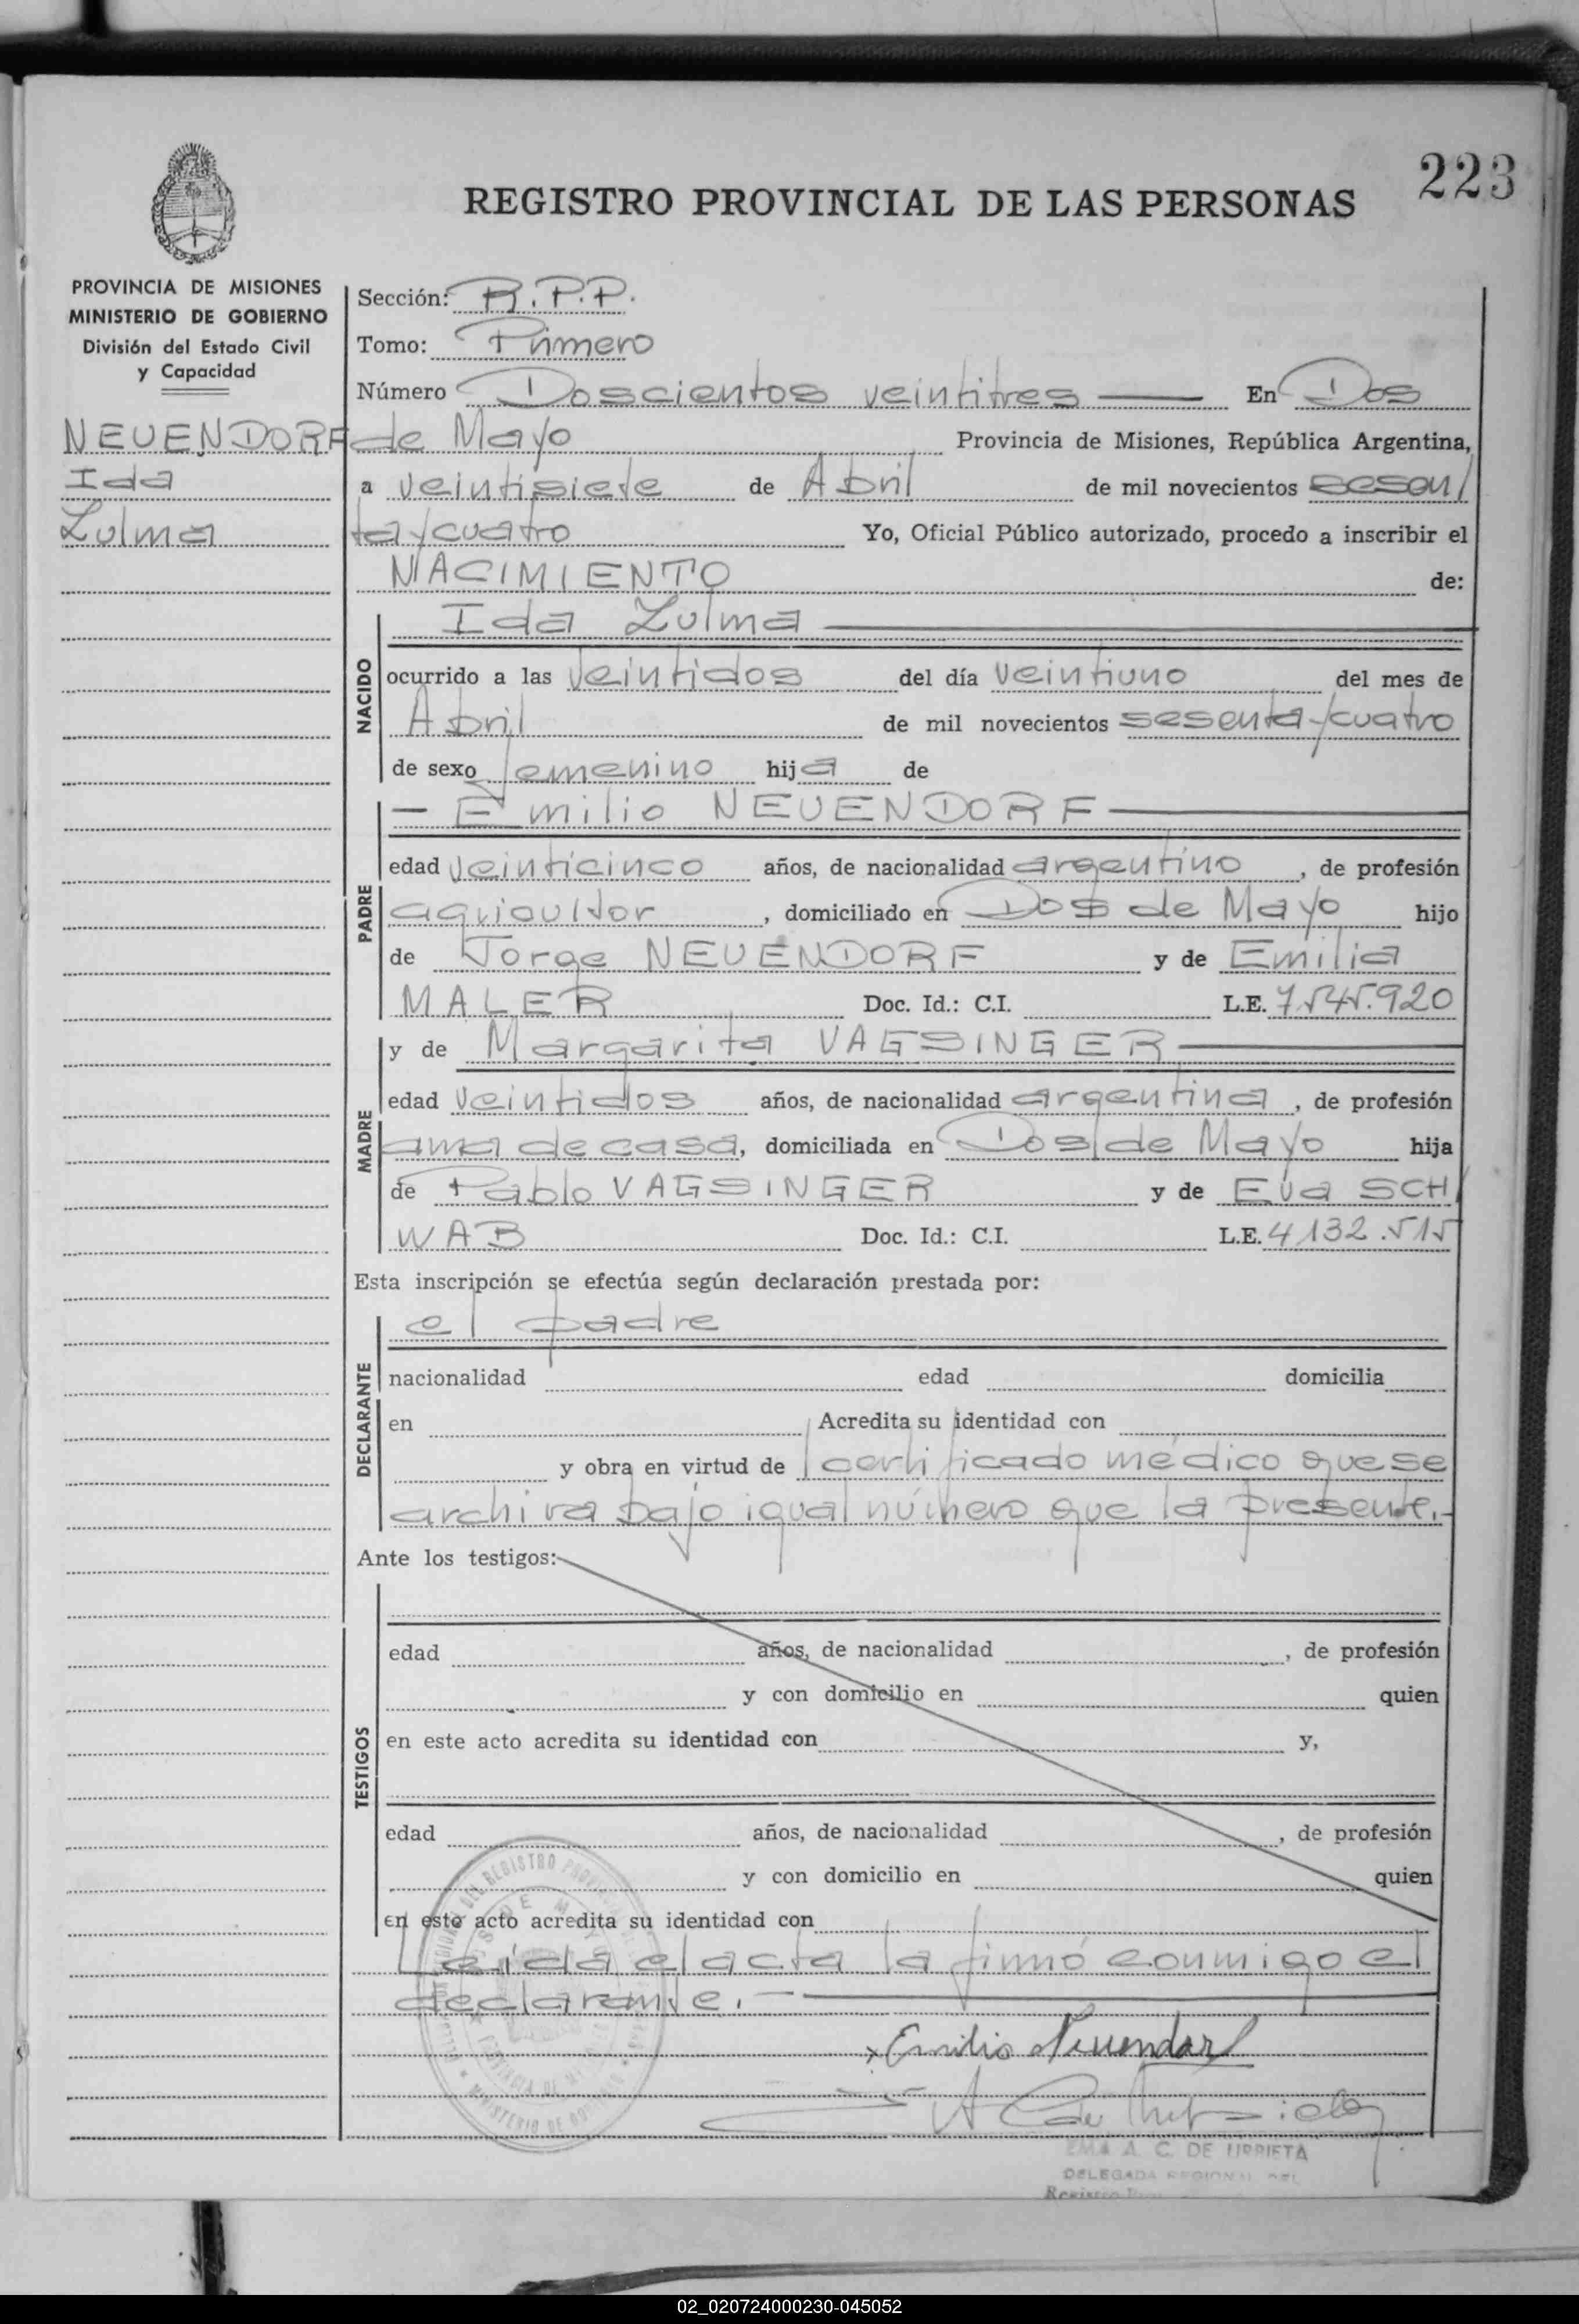 223
REGISTRO PROVINCIAL DE LAS PERSONAS
PROVINCIA DE MISIONES
MINISTERIO DE GOBIERNO
División del Estado Civil
y Capacidad
NEUENDORF
Ida
Zulma
Sección: R.P.P.
Tomo: Primero
Número Doscientos veintitres En Dos
de Mayo Provincia de Misiones, República Argentina,
a veintisiete de Abril de mil novecientos sesen/
ta y cuatro Yo, Oficial Público autorizado, procedo a inscribir el
NACIMIENTO de:
NACIDO
Ida Zulma
ocurrido a las veintidos del día veintiuno del mes de
Abril de mil novecientos sesenta y cuatro
de sexo femenino hija de
PADRE
— Emilio NEUENDORF —
edad veinticinco años, de nacionalidad argentino, de profesión
agricultor, domiciliado en Dos de Mayo hijo
de Jorge NEUENDORF y de Emilia
MALER Doc. Id.: C.I. L.E. 7.545.920
MADRE
y de Margarita VAGSINGER
edad veintidos años, de nacionalidad argentina, de profesión
ama de casa, domiciliada en Dos de Mayo hija
de Pablo VAGSINGER y de Eva SCH/
WAB Doc. Id.: C.I. L.E. 4132.515
Esta inscripción se efectúa según declaración prestada por:
DECLARANTE
el padre
nacionalidad edad domicilia
en Acredita su identidad con
y obra en virtud de certificado médico que se
archiva bajo igual número que la presente.-
Ante los testigos:
TESTIGOS
edad años, de nacionalidad , de profesión
y con domicilio en quien
en este acto acredita su identidad con y,
edad años, de nacionalidad , de profesión
y con domicilio en quien
en este acto acredita su identidad con
Leída el acta la firmó conmigo el
declarante.-
x Emilio Neuendorf
EMA A. C. DE URRIETA
DELEGADA REGIONAL DEL
02_020724000230-045052